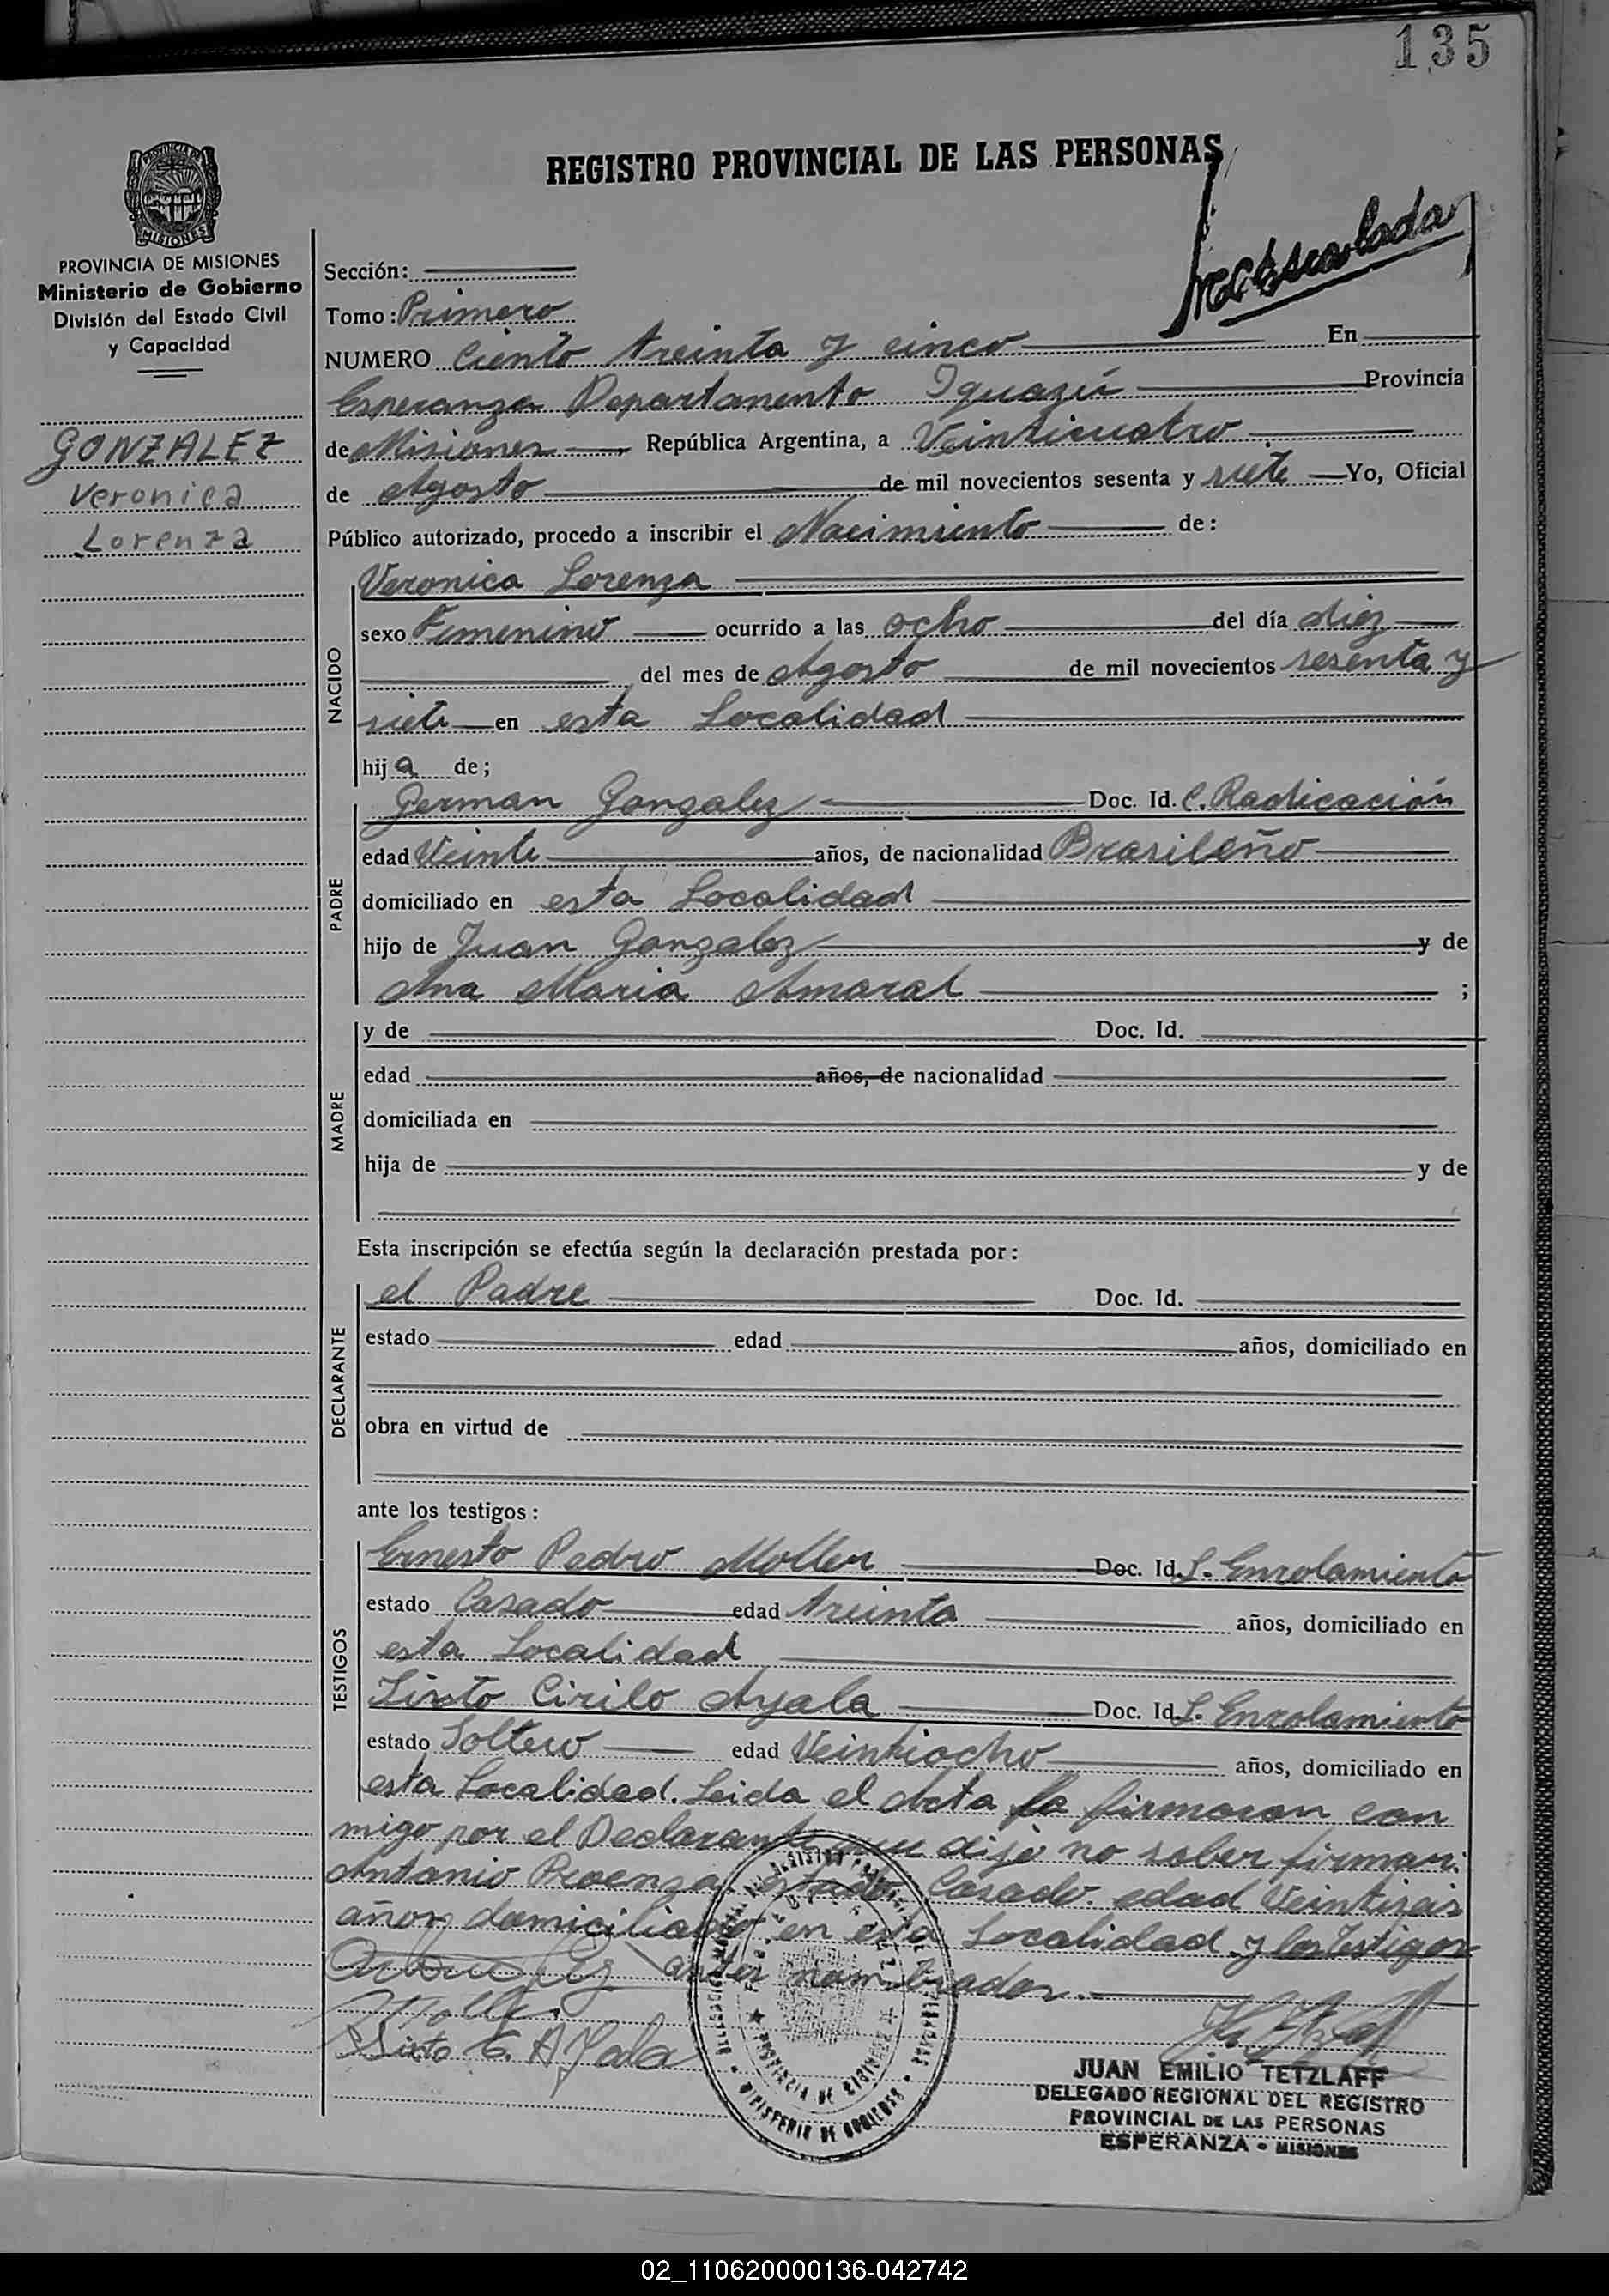 135
REGISTRO PROVINCIAL DE LAS PERSONAS
PROVINCIA DE MISIONES
PROVINCIA DE MISIONES
Ministerio de Gobierno
División del Estado Civil
y Capacidad
GONZALEZ
Veronica
Lorenza
Sección:
Tomo: Primero
NUMERO Ciento treinta y cinco En
Esperanza Departamento Iguazú Provincia
de Misiones República Argentina, a Veinticuatro
de Agosto de mil novecientos sesenta y siete Yo, Oficial
Público autorizado, procedo a inscribir el Nacimiento de:
NACIDO
Veronica Lorenza
sexo Femenino ocurrido a las ocho del día diez
del mes de Agosto de mil novecientos sesenta y
siete en esta Localidad
hija de;
PADRE
German Gonzalez Doc. Id. C. Radicación
edad Veinte años, de nacionalidad Brasileño
domiciliado en esta Localidad
hijo de Juan Gonzalez y de
Ana Maria Amaral ;
MADRE
y de Doc. Id.
edad años, de nacionalidad
domiciliada en
hija de y de
Esta inscripción se efectúa según la declaración prestada por:
DECLARANTE
el Padre Doc. Id.
estado edad años, domiciliado en
obra en virtud de
ante los testigos:
TESTIGOS
Ernesto Pedro Moller Doc. Id. L. Enrolamiento
estado Casado edad treinta años, domiciliado en
esta Localidad
Sixto Cirilo Ayala Doc. Id. L. Enrolamiento
estado Soltero edad Veintiocho años, domiciliado en
esta Localidad. Leida el Acta la firmaron con
migo por el Declarante que dijo no saber firmar:
Antonio Proenza estado Casado edad Veintiseis
años domiciliado en esta Localidad y los Testigos
antes nombrados.
Sixto C. Ayala
JUAN EMILIO TETZLAFF
DELEGADO REGIONAL DEL REGISTRO
PROVINCIAL DE LAS PERSONAS
ESPERANZA - MISIONES
02_110620000136-042742